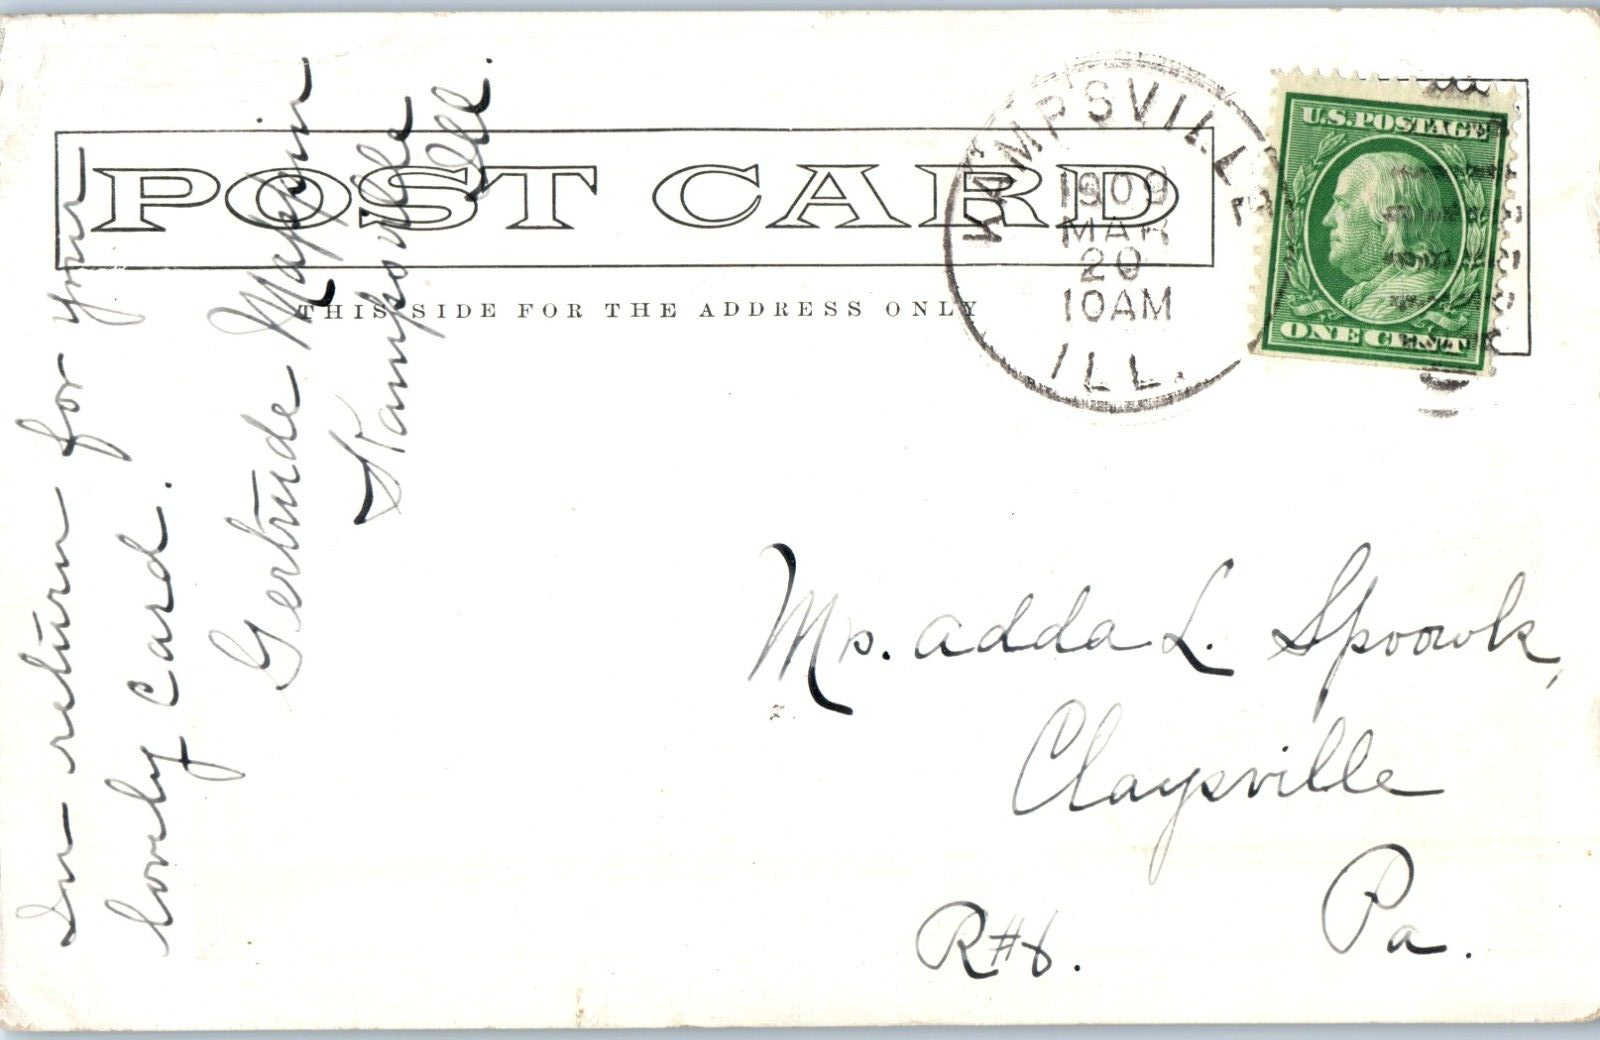 POST CARD
THIS SIDE FOR THE ADDRESS ONLY
KAMPSVILLE
1909
MAR
20
10AM
ILL.
U.S. POSTAGE
ONE CENT
In return for your
lovely card.
Gertrude
Kampsville
Ill.
Ms. adda L.
Claysville
Pa.
R#6.